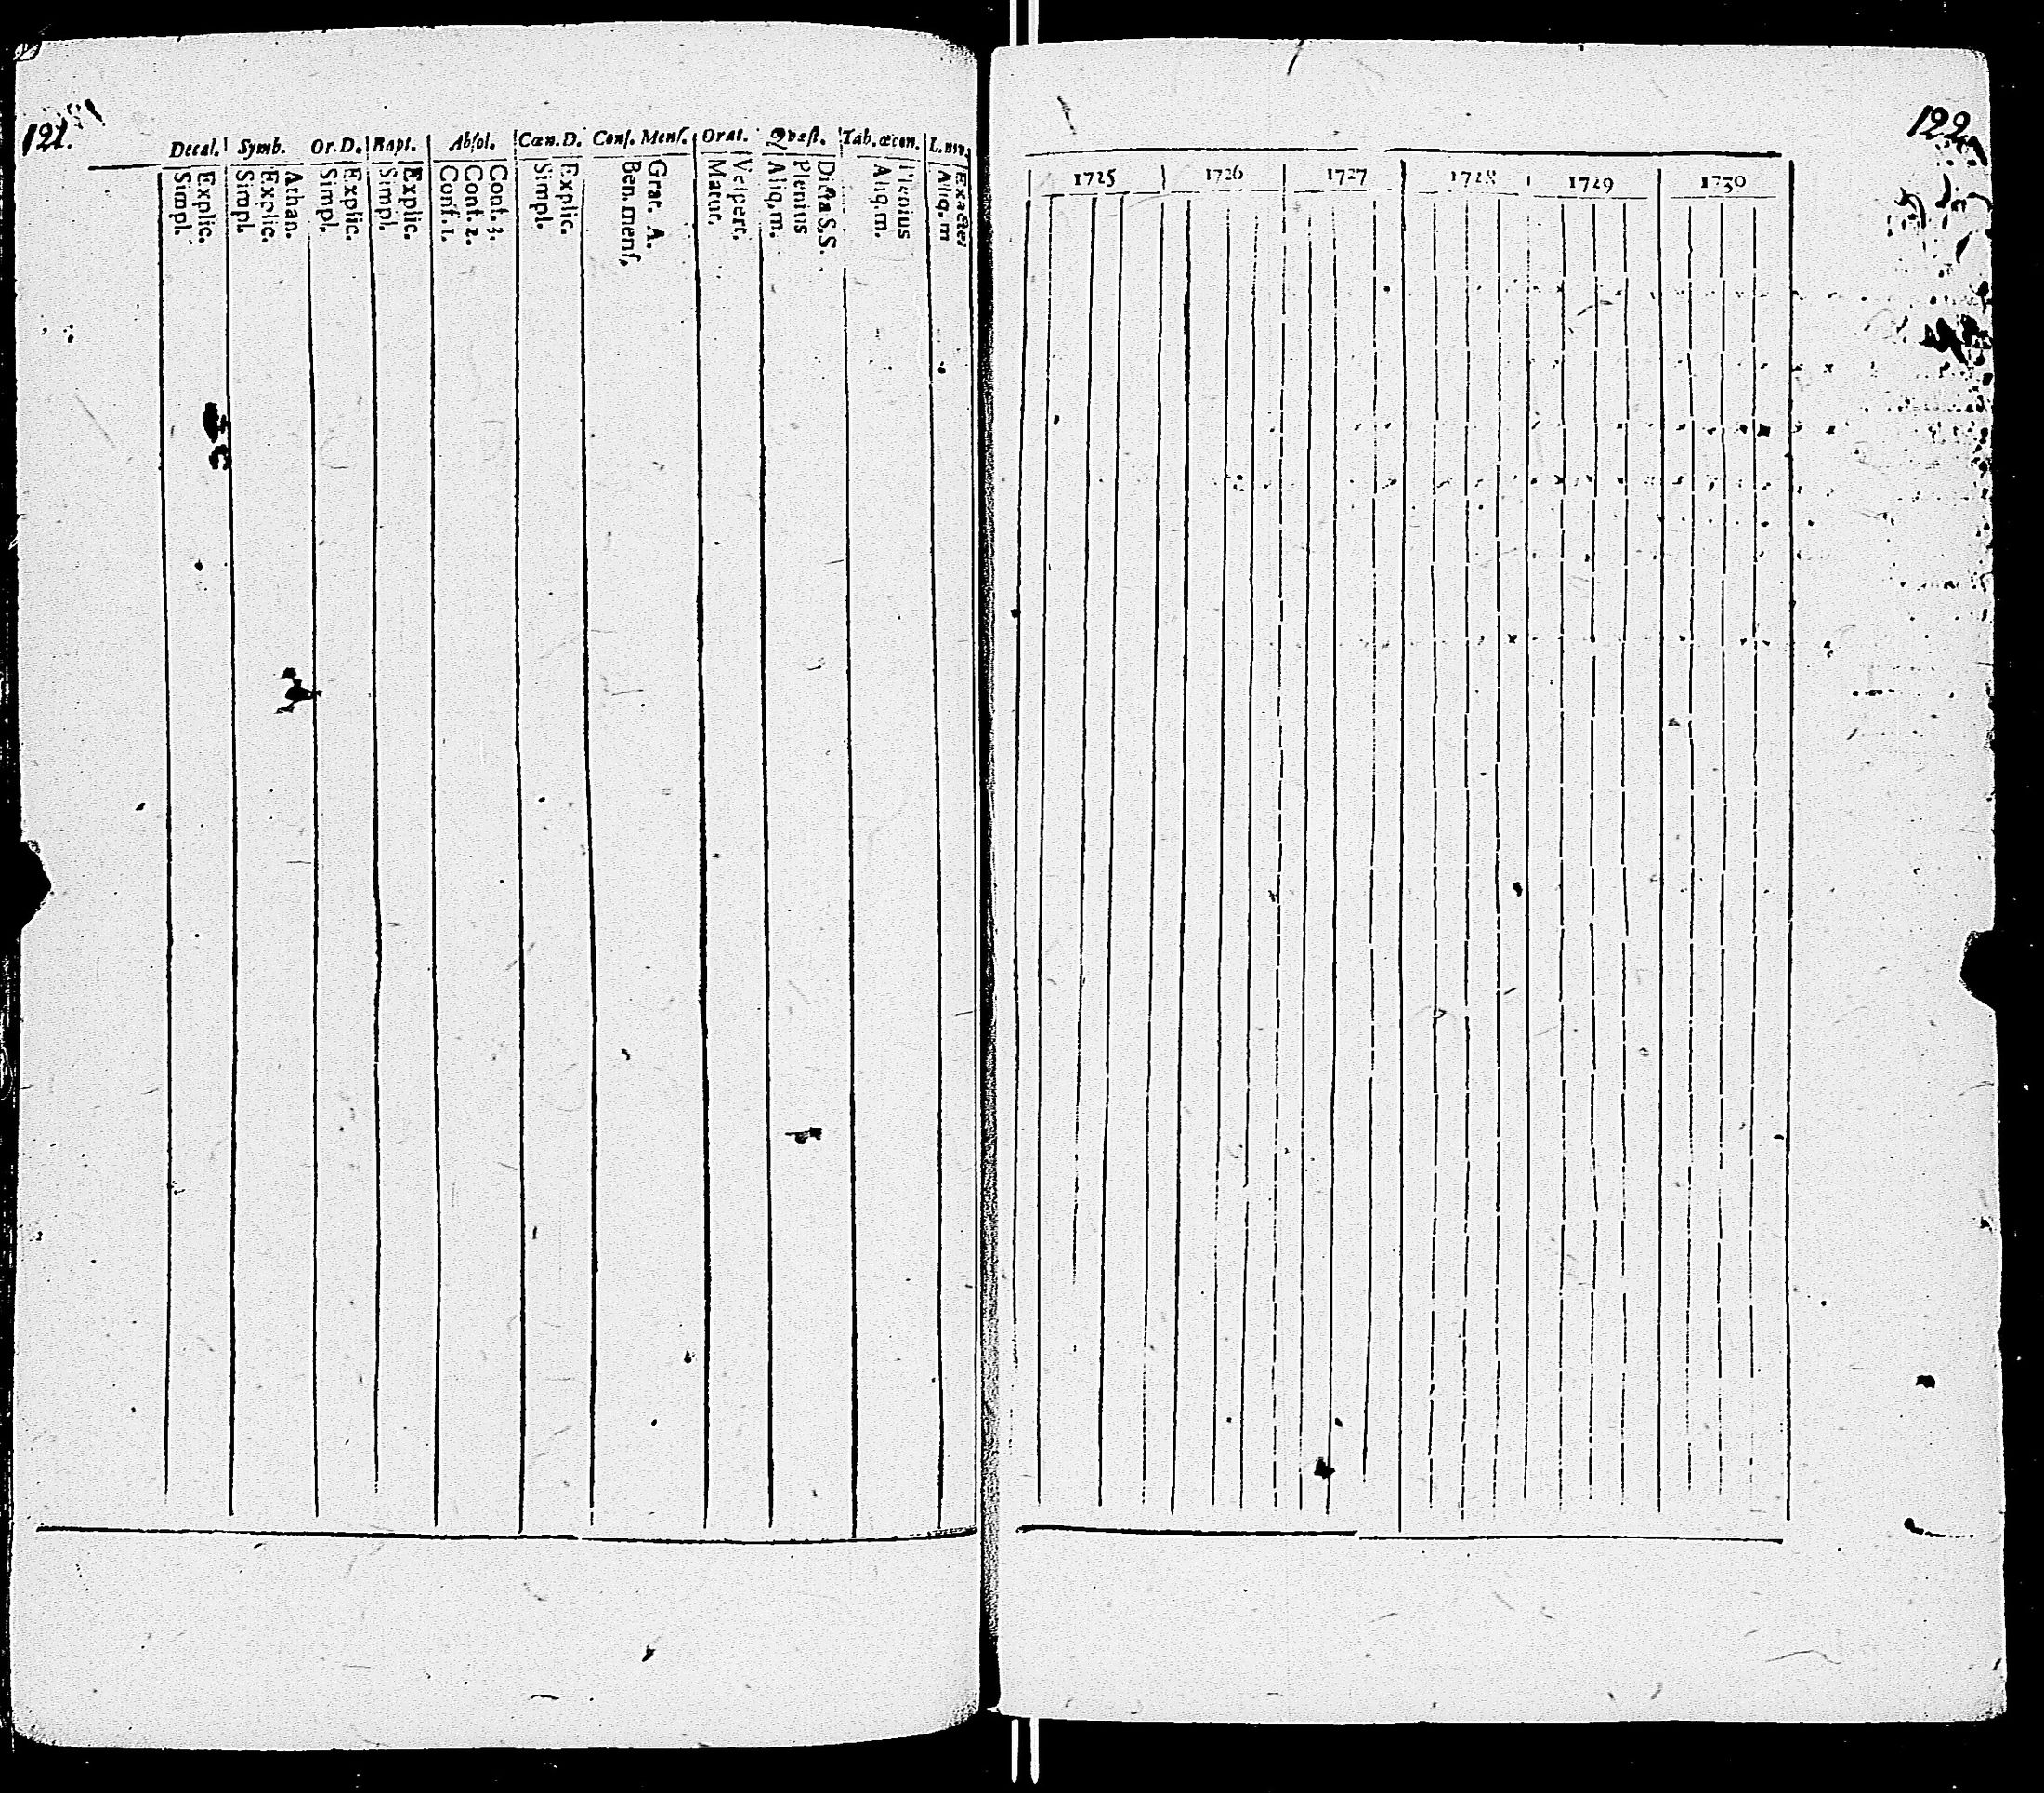 121.
Decal. Symb. Or. D. Bapt. Abſol. Cœn. D. Conf. Menſ. Orat. Qvæſt. Tab. œcon. L. niv.
Explic.
Simpl.
Athan.
Explic.
Simpl.
Explic.
Simpl.
Explic.
Simpl.
Conf. 3.
Conf. 2.
Conf. 1.
Explic.
Simpl.
Grat. A.
Ben. menſ.
Veſpert.
Matut.
Dicta S.S.
Plenius
Aliq. m.
Plenius
Aliq. m.
Exacte.
Aliq. m
122
1725 1726 1727 1728 1729 1730